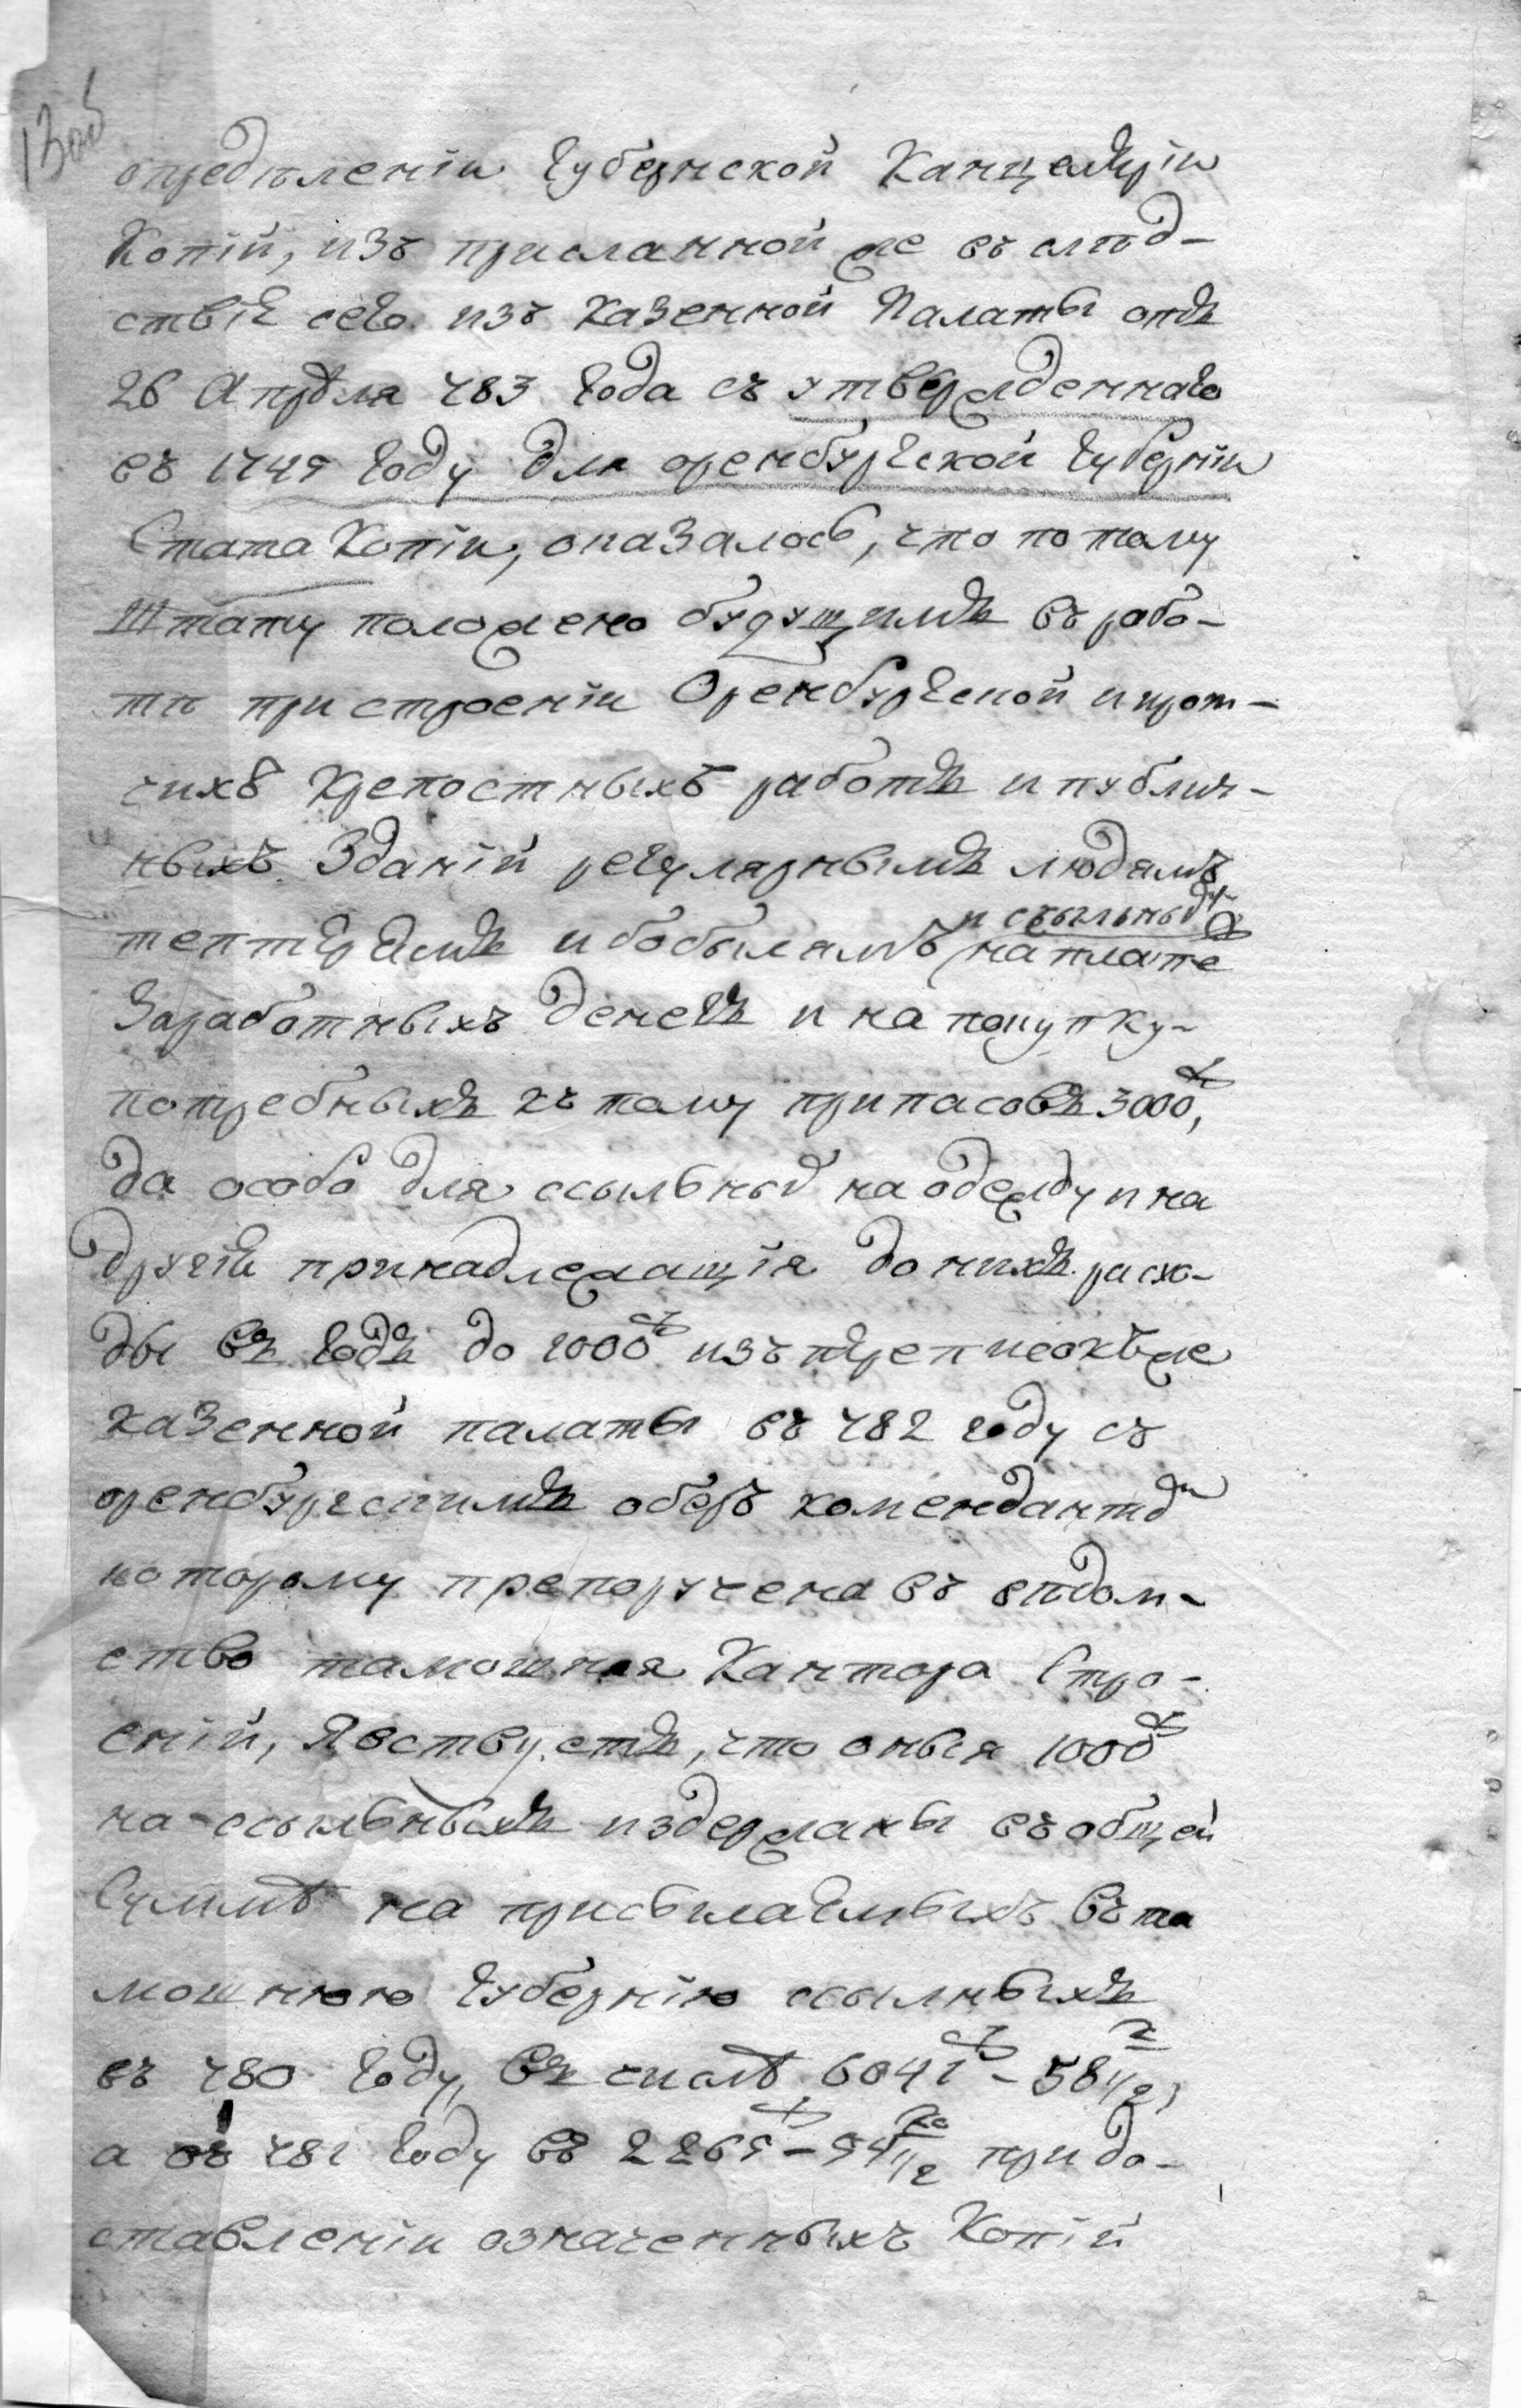 13об
определеніи Губернской Канцеляріи
Копій, изъ присланной же въ след-
ствіе сего изъ казенной Палаты отъ
26 Апреля 783 Года съ утвержденнаго
въ 1749 Году для оренбургской Губерніи
Штата Копіи, оказалось, что по тому
Штату положено будущимъ въ рабо-
те при строеніи Оренбургской и прот-
чихъ крепостныхъ работъ и публич-
ныхъ Зданій регулярнымъ людямъ
и ссыльны
тептерямъ и бобылямъ на плате
Заработныхъ денегъ и на покупку
потребныхъ къ тому припасовъ 3000,
да особо для ссыльных на одежду и на
другія принадлежащія до нихъ расхо-
ды въ годъ до 1000 изъ переписокъ же
казенной палаты въ 782 году съ
оренбургскимъ оберъ комендантом
которому препоручена въ ведом-
ство тамошняя Кантора Стро-
еній, Явствуетъ, что оныя 1000
на ссыльныхъ издержаны въ общей
Сумме на присылаемыхъ въ та
мошнюю Губернію ссылныхъ
въ 780 Году, въ числе 6041 - 58 1/2,
а въ 781 Году въ 2269 - 94 1/2 при до-
ставленіи означенныхъ Копій